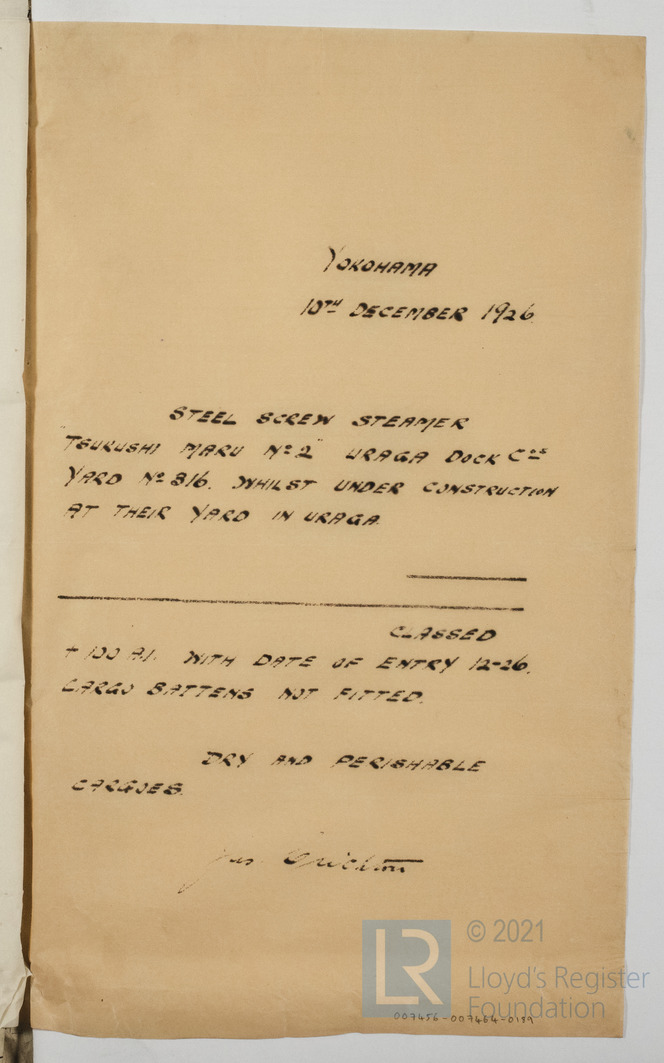 YOKOHAMA
10TH DECEMBER 1926.
STEEL SCREW STEAMER
"TSUKUSHI MARU No 2" URAGA DOCK Cos
YARD No 316. WHILST UNDER CONSTRUCTION
AT THEIR YARD IN URAGA.
CLASSED
+ 100 A.1. WITH DATE OF ENTRY 12-26.
CARGO BATTENS NOT FITTED.
DRY AND PERISHABLE
CARGOES.
Jas. Crichton
LR
© 2021
Lloyd's Register
Foundation
007456-007464-0189